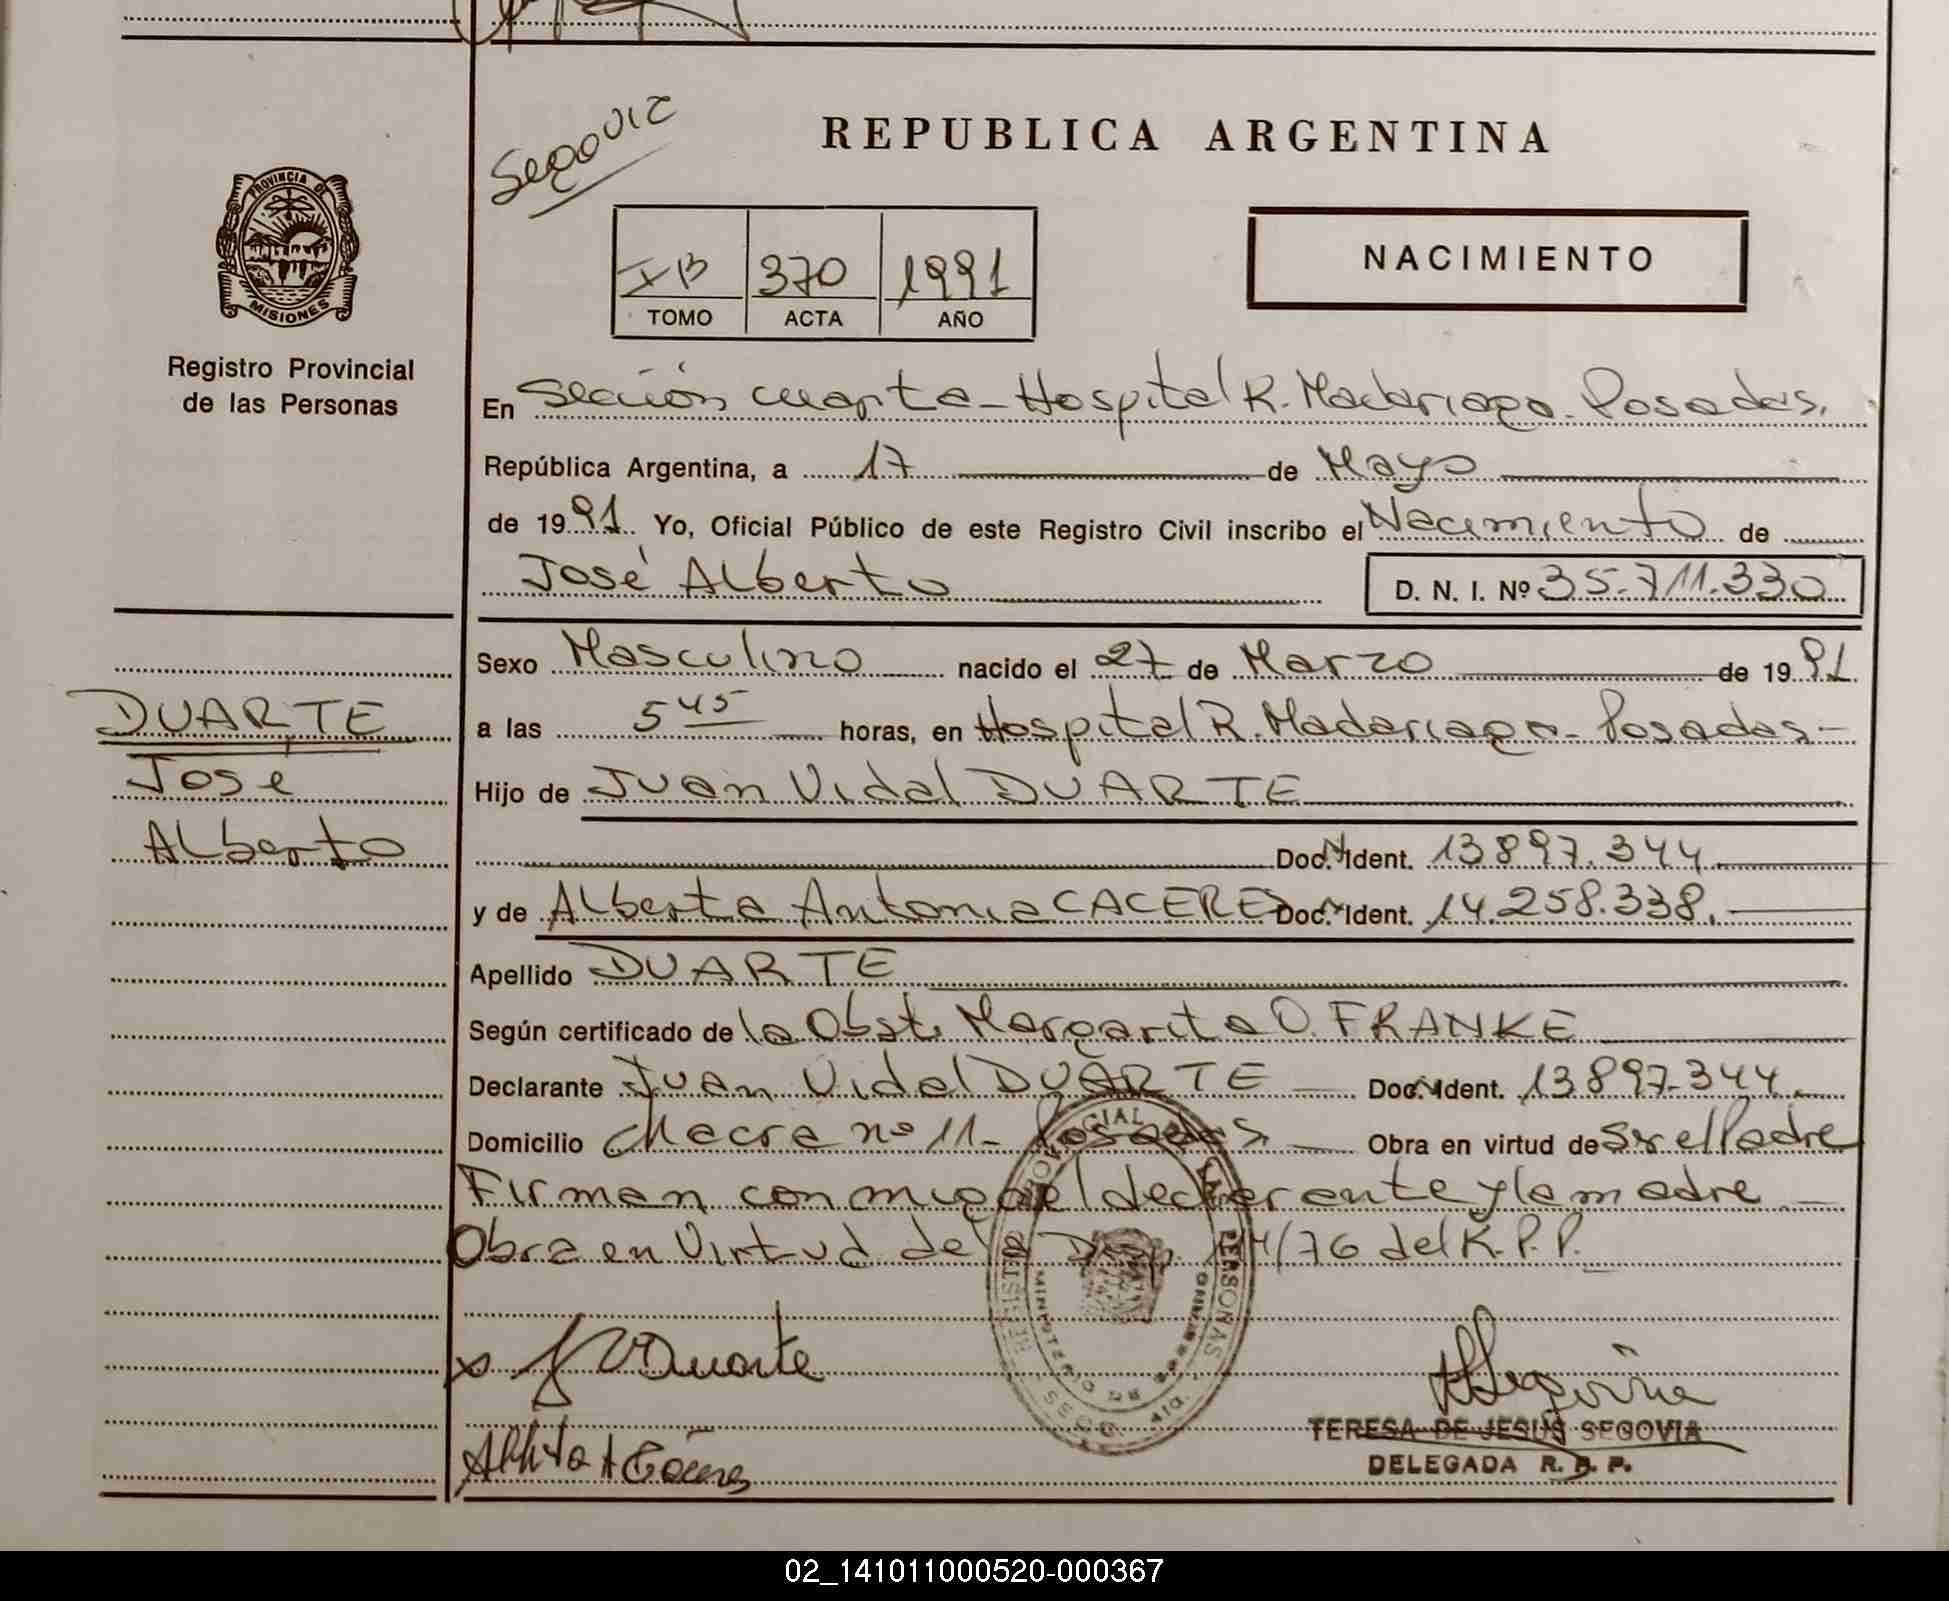 Segovia
REPUBLICA ARGENTINA
PROVINCIA DE
MISIONES
Registro Provincial
de las Personas
IB 370 1991
TOMO ACTA AÑO
NACIMIENTO
En Sección cuarta - Hospital R. Madariaga - Posadas.
República Argentina, a 17 de Mayo
de 1991 Yo, Oficial Público de este Registro Civil inscribo el Nacimiento de
José Alberto D. N. I. Nº 35.711.330
Sexo Masculino nacido el 27 de Marzo de 1991
DUARTE
José
Alberto
a las 5 45 horas, en Hospital R. Madariaga - Posadas -
Hijo de Juan Vidal DUARTE
Doc. N Ident. 13897.344
y de Alberta Antonia CACERES Doc. N Ident. 14.258.338.
Apellido DUARTE
Según certificado de la Obst. Margarita O. FRANKE
Declarante Juan Vidal DUARTE Doc. N Ident. 13897.344
Domicilio Chacra nº 11 - Posadas Obra en virtud de Sr el Padre
Firman conmigo el declarante y la madre
Obra en Virtud del /76 del R.P.P.
x J V Duarte
TERESA DE JESUS SEGOVIA
DELEGADA R. P. P.
02_141011000520-000367